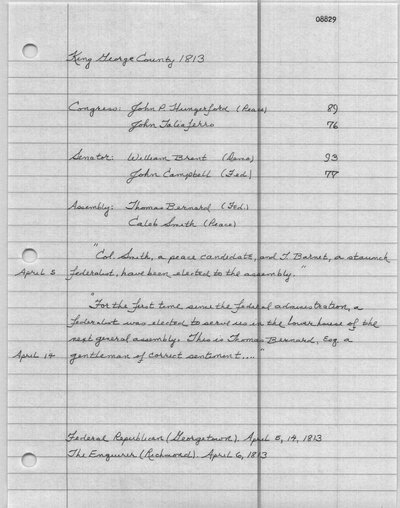 08829
King George County 1813
Congress: John P. Hungerford (Peace) 89
John Taliaferro 76
Senator: William Brent (Demo) 93
John Campbell (Fed.) 77
Assembly: Thomas Bernard (Fed.)
Caleb Smith (Peace)
"Col Smith, a peace candidate, and T. Barnet, a staunch
April 5 federalist, have been elected to the assembly."
"For the first time since the federal administration, a
federalist was elected to serve us in the lower house of the
next general assembly. This is Thomas Bernard, Esq. a
April 14 gentleman of correct sentiment...."
Federal Republican (Georgetown). April 5, 14, 1813
The Enquirer (Richmond). April 6, 1813